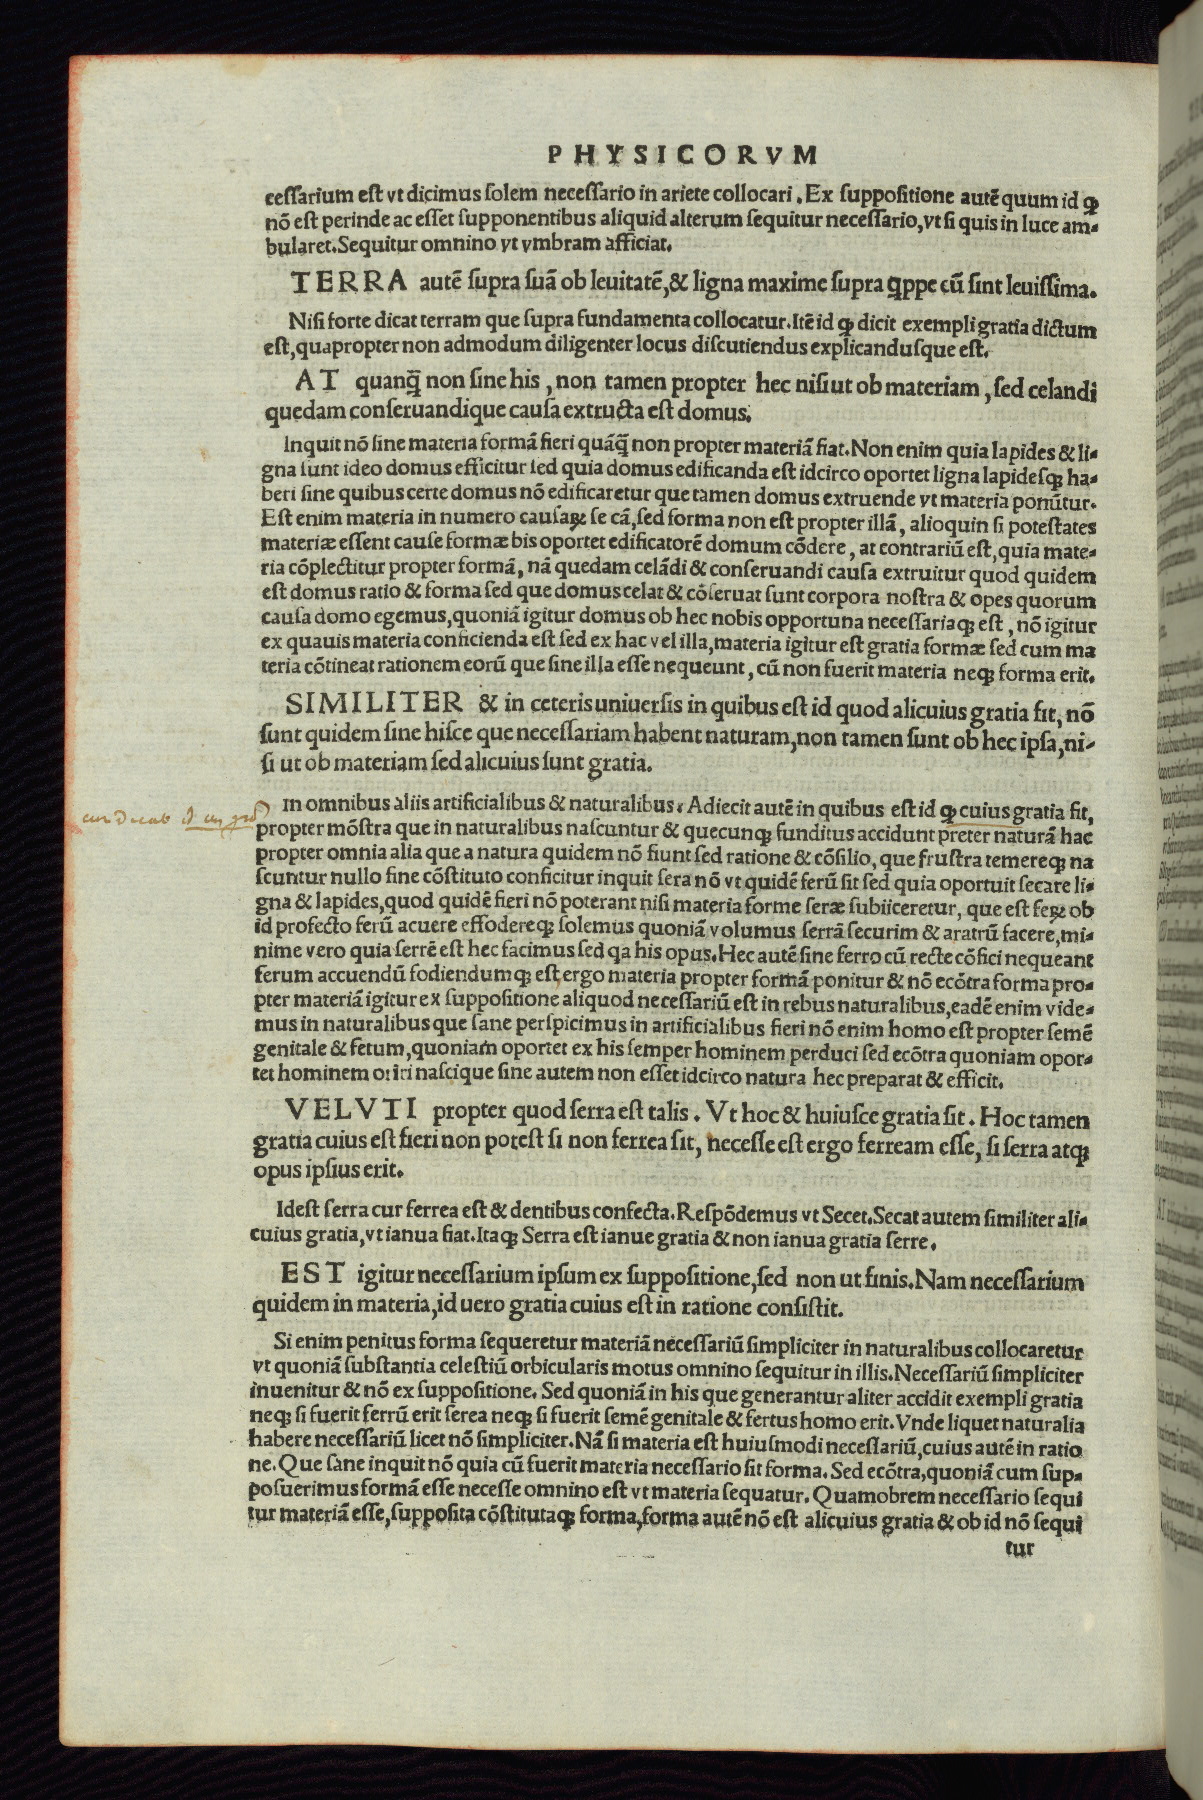 PHYSICORVM
cessarium est vt dicimus solem necessario in ariete collocari. Ex suppositione autẽ quum id ꝙ
nõ est perinde ac esset supponentibus aliquid alterum sequitur necessario, vt si quis in luce am-
bularet. Sequitur omnino vt vmbram afficiat.
TERRA autẽ supra suã ob leuitatẽ, & ligna maxime supra ꝗppe cũ sint leuissima.
Nisi forte dicat terram que supra fundamenta collocatur. Itẽ id ꝙ dicit exempli gratia dictum
est, quapropter non admodum diligenter locus discutiendus explicandusque est.
AT quanq̃ non sine his, non tamen propter hec nisi ut ob materiam, sed celandi
quedam conseruandique causa extructa est domus.
Inquit nõ sine materia formã fieri quãq̃ non propter materiã fiat. Non enim quia lapides & li-
gna sunt ideo domus efficitur sed quia domus edificanda est idcirco oportet ligna lapidesꝗ ha-
beri sine quibus certe domus nõ edificaretur que tamen domus extruende vt materia ponũtur.
Est enim materia in numero causaꝝ se cã, sed forma non est propter illã, alioquin si potestates
materiæ essent cause formæ bis oportet edificatorẽ domum cõdere, at contrariũ est, quia mate-
ria cõplectitur propter formã, nã quedam celãdi & conseruandi causa extruitur quod quidem
est domus ratio & forma sed que domus celat & cõseruat sunt corpora nostra & opes quorum
causa domo egemus, quoniã igitur domus ob hec nobis opportuna necessariaꝗ est, nõ igitur
ex quauis materia conficienda est sed ex hac vel illa, materia igitur est gratia formæ sed cum ma
teria cõtineat rationem eorũ que sine illa esse nequeunt, cũ non fuerit materia neꝗ forma erit.
SIMILITER & in ceteris uniuersis in quibus est id quod alicuius gratia fit, nõ
sunt quidem sine hisce que necessariam habent naturam, non tamen sunt ob hec ipsa, ni-
si ut ob materiam sed alicuius sunt gratia.
in omnibus aliis artificialibus & naturalibus. Adiecit autẽ in quibus est id ꝙ cuius gratia fit,
propter mõstra que in naturalibus nascuntur & quecunꝗ funditus accidunt preter naturã hac
propter omnia alia que a natura quidem nõ fiunt sed ratione & cõsilio, que frustra temereꝗ na
scuntur nullo fine cõstituto conficitur inquit sera nõ vt quidẽ ferũ sit sed quia oportuit secare li-
gna & lapides, quod quidẽ fieri nõ poterant nisi materia forme seræ subiiceretur, que est feꝝ ob
id profecto ferũ acuere effodereꝗ solemus quoniã volumus serrã securim & aratrũ facere, mi-
nime vero quia serrẽ est hec facimus sed ꝗa his opus. Hec autẽ sine ferro cũ recte cõfici nequeant
ferum accuendũ fodiendumꝗ est, ergo materia propter formã ponitur & nõ ecõtra forma pro-
pter materiã igitur ex suppositione aliquod necessariũ est in rebus naturalibus, eadẽ enim vide-
mus in naturalibus que sane perspicimus in artificialibus fieri nõ enim homo est propter semẽ
genitale & fetum, quoniam oportet ex his semper hominem perduci sed ecõtra quoniam opor-
tet hominem oriri nascique sine autem non esset idcirco natura hec preparat & efficit.
VELVTI propter quod serra est talis. Vt hoc & huiusce gratia sit. Hoc tamen
gratia cuius est fieri non potest si non ferrea sit, necesse est ergo ferream esse, si serra atꝗ
opus ipsius erit.
Idest serra cur ferrea est & dentibus confecta. Respõdemus vt Secet. Secat autem similiter ali-
cuius gratia, vt ianua fiat. Itaꝗ Serra est ianue gratia & non ianua gratia serre.
EST igitur necessarium ipsum ex suppositione, sed non ut finis. Nam necessarium
quidem in materia, id uero gratia cuius est in ratione consistit.
Si enim penitus forma sequeretur materiã necessariũ simpliciter in naturalibus collocaretur
vt quoniã substantia celestiũ orbicularis motus omnino sequitur in illis. Necessariũ simpliciter
inuenitur & nõ ex suppositione. Sed quoniã in his que generantur aliter accidit exempli gratia
neꝗ si fuerit ferrũ erit serea neꝗ si fuerit semẽ genitale & fertus homo erit. Vnde liquet naturalia
habere necessariũ licet nõ simpliciter. Nã si materia est huiusmodi necessariũ, cuius autẽ in ratio
ne. Que sane inquit nõ quia cũ fuerit materia necessario sit forma. Sed ecõtra, quoniã cum sup-
posuerimus formã esse necesse omnino est vt materia sequatur. Quamobrem necessario sequi
tur materiã esse, supposita cõstitutaꝗ forma, forma autẽ nõ est alicuius gratia & ob id nõ sequi
tur